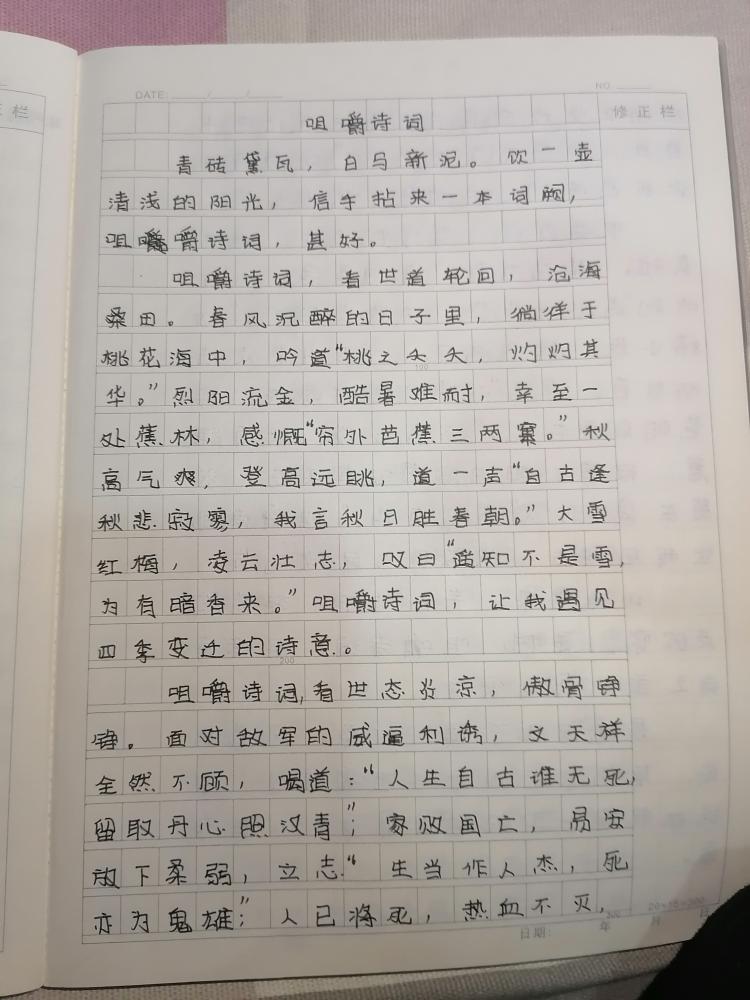 DATE: / /
NO.
正栏
修正栏
咀嚼诗词
青砖黛瓦，白马新泥。饮一壶
清浅的阳光，信手拈来一本词阙，
咀嚼诗词，甚好。
咀嚼诗词，看世道轮回，沧海
桑田。春风沉醉的日子里，徜徉于
桃花海中，吟道“桃之夭夭，灼灼其
华。”烈阳流金，酷暑难耐，幸至一
处蕉林，感慨“窗外芭蕉三两窠。”秋
高气爽，登高远眺，道一声“自古逢
秋悲寂寥，我言秋日胜春朝。”大雪
红梅，凌云壮志，叹曰“遥知不是雪，
为有暗香来。”咀嚼诗词，让我遇见
四季变迁的诗意。
咀嚼诗词，看世态炎凉，傲骨铮
铮。面对敌军的威逼利诱，文天祥
全然不顾，喝道：“人生自古谁无死，
留取丹心照汉青”；家败国亡，易安
放下柔弱，立志“生当作人杰，死
亦为鬼雄”；人已将死，热血不灭，
100
200
300
20×15=300
日期： 年 月 日